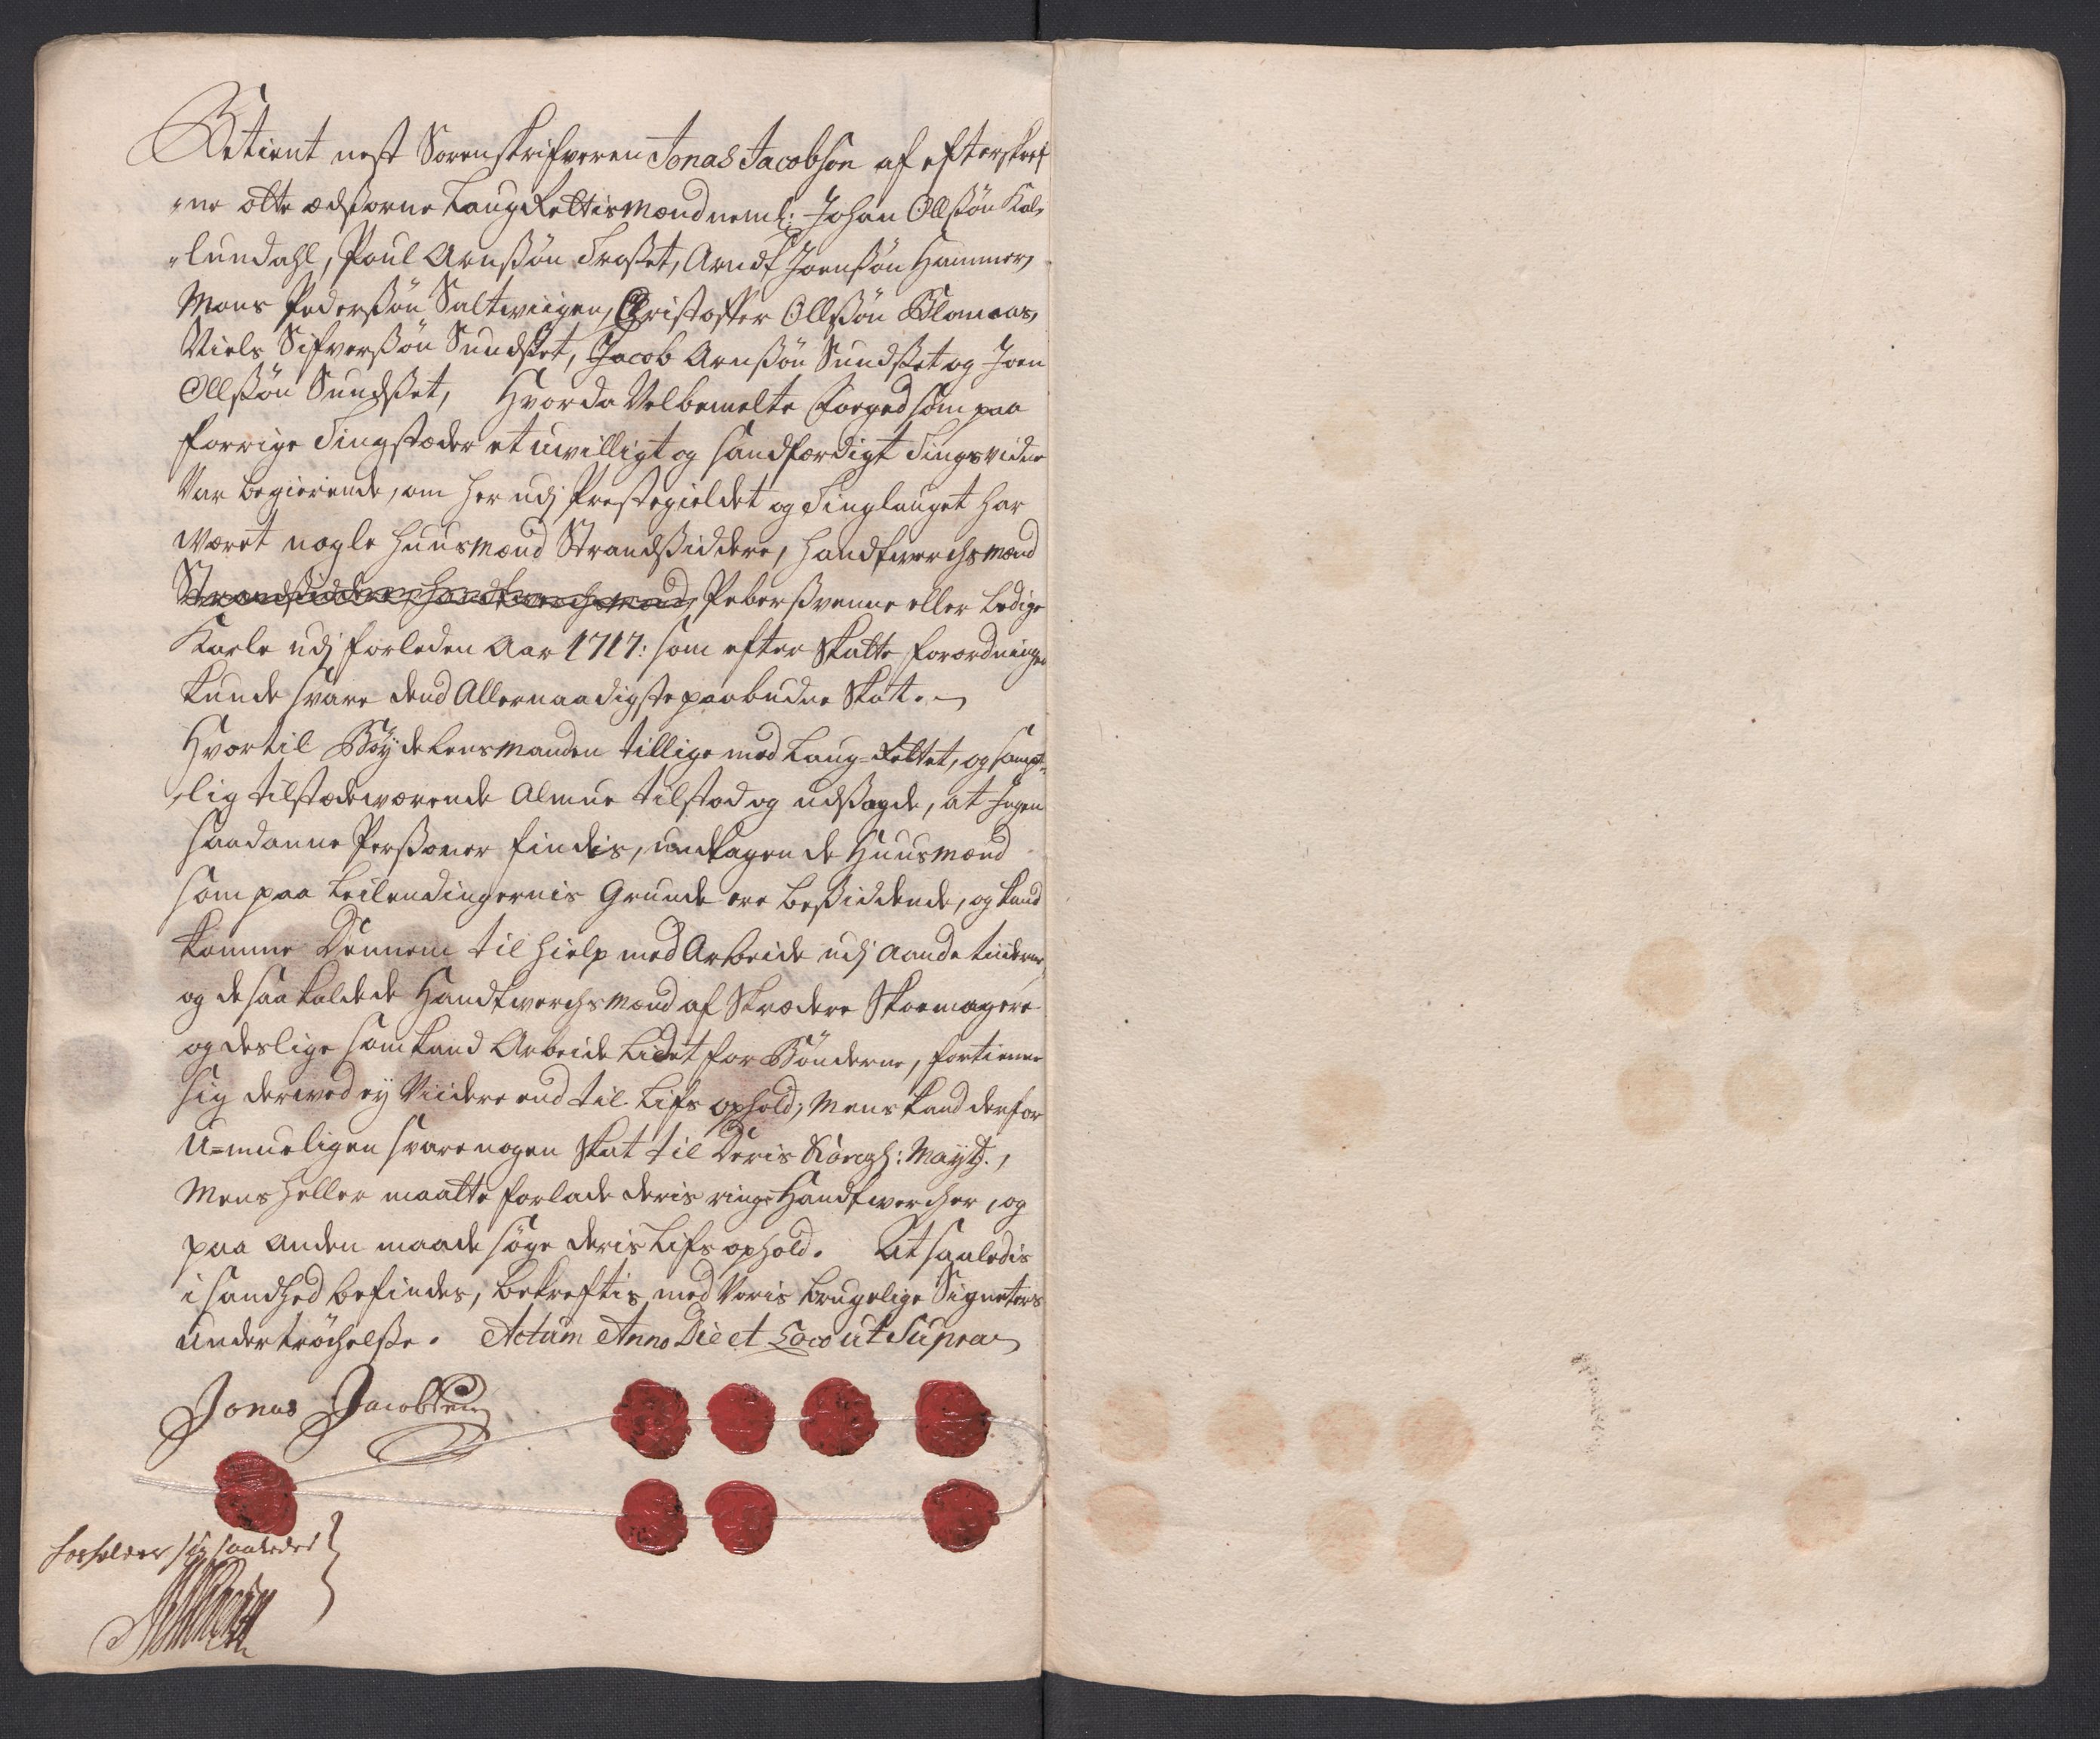 Betient nest Sorenskrifveren Jonas Jacobsen af efterskref
„ne otte ædsorne Laug Rettismænd neml: Johan Ollssøn Kal„
„lundahl, Poul Arnssøn Trosset, Arndt Joenssøn Hammer,
Mons Pederssøn Saltwiigen, Christoffer Ollssøn Blomaas,
Niels Sifverssøn Sundsset, Jacob Arnssøn Sundsset og Joen
Ollssøn Sundsset, Hvor da Velbemelte Foged som paa
forrige Tingstæder et uvilligt og sandfærdigt Tingsvidne
Var begierende, om her udj Præstegieldet og Tinglauget har
Været nogle Huusmænd Strandssiddere, Handtwerchsmænd
Strandssiddere, Handtwerchsmænd, Pebersvenne eller Ledige
Karle udj forleden Aar 1717: som efter Skatte forordningen
kunde svare dend Allernaadigste paabudne Skat.
Hvortil Bøyde Lensmanden tillige med Laug=Rettet, og sampt=
„lig tilstædeværende Almue tilstod og udsagde, at Ingen
saadanne Perssoner findis, undtagen de Huusmænd
som paa Leilendingernis Grunde ere Bessiddende, og kand
komme Dennem til hielp med Arbeide udj Aande tiiderne,
og de saa kaldede Handtwerchsmænd af Skrædere Skoemagere
og deslige som kand Arbeide Lidet for Bønderne, fortiene
sig derwed ey Viidere end til Lifs ophold, Mens kand derfor
U=mueligen svare nogen Skat til Deris Kongl: Mayt.,
Mens heller maatte forlade deris ringe Handtwercher, og
paa anden maade søge deris Lifs ophold. At saaledis
i sandhed befindes, bekreftis med Voris brugelige Signeters
undertrøchelsse. Actum Anno Die et Loco ut Supra
Jonas Jacobsen
forholder sig saaledes